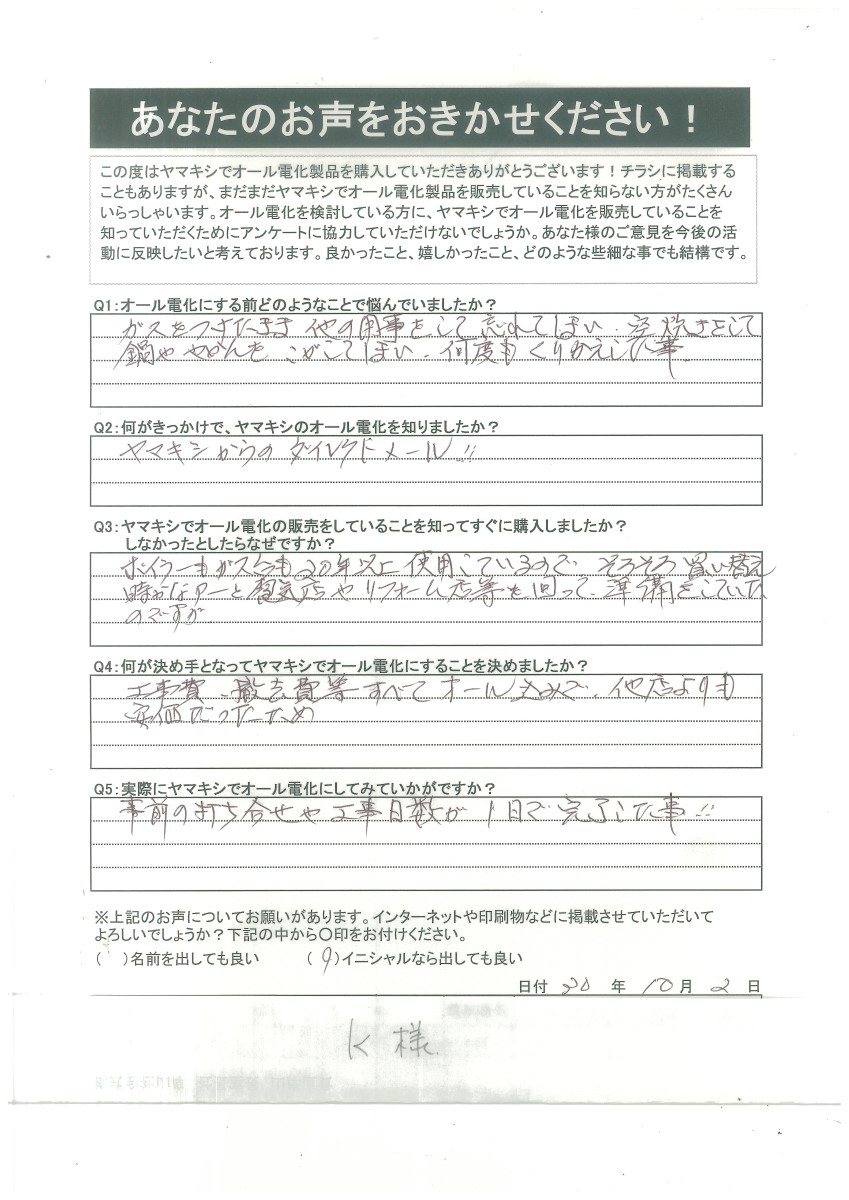 あなたのお声をおきかせください！
この度はヤマキシでオール電化製品を購入していただきありがとうございます！チラシに掲載する
こともありますが、まだまだヤマキシでオール電化製品を販売していることを知らない方がたくさん
いらっしゃいます。オール電化を検討している方に、ヤマキシでオール電化を販売していることを
知っていただくためにアンケートに協力していただけないでしょうか。あなた様のご意見を今後の活
動に反映したいと考えております。良かったこと、嬉しかったこと、どのような些細な事でも結構です。
Q1：オール電化にする前どのようなことで悩んでいましたか？
ガスをつけたまま 他の用事をして 忘れてしまい、空焼きをして
鍋や やかんを こがしてしまい、何度も くりかえした事
Q2：何がきっかけで、ヤマキシのオール電化を知りましたか？
ヤマキシからの ダイレクトメール!!
Q3：ヤマキシでオール電化の販売をしていることを知ってすぐに購入しましたか？
しなかったとしたらなぜですか？
ボイラーもガス台も20年以上 使用しているので そろそろ 買い替え
時かなアーと電気店やリフォーム店等を回って、準備をしていた
のですが
Q4：何が決め手となってヤマキシでオール電化にすることを決めましたか？
工事費、撤去費等すべて オール込みで、他店よりも
安価だったため
Q5：実際にヤマキシでオール電化にしてみていかがですか？
事前の打ち合せや 工事日数が 1日で 完了した事!!
※上記のお声についてお願いがあります。インターネットや印刷物などに掲載させていただいて
よろしいでしょうか？下記の中から〇印をお付けください。
（　）名前を出しても良い　　（○）イニシャルなら出しても良い
日付 20 年 10 月 2 日
K 様